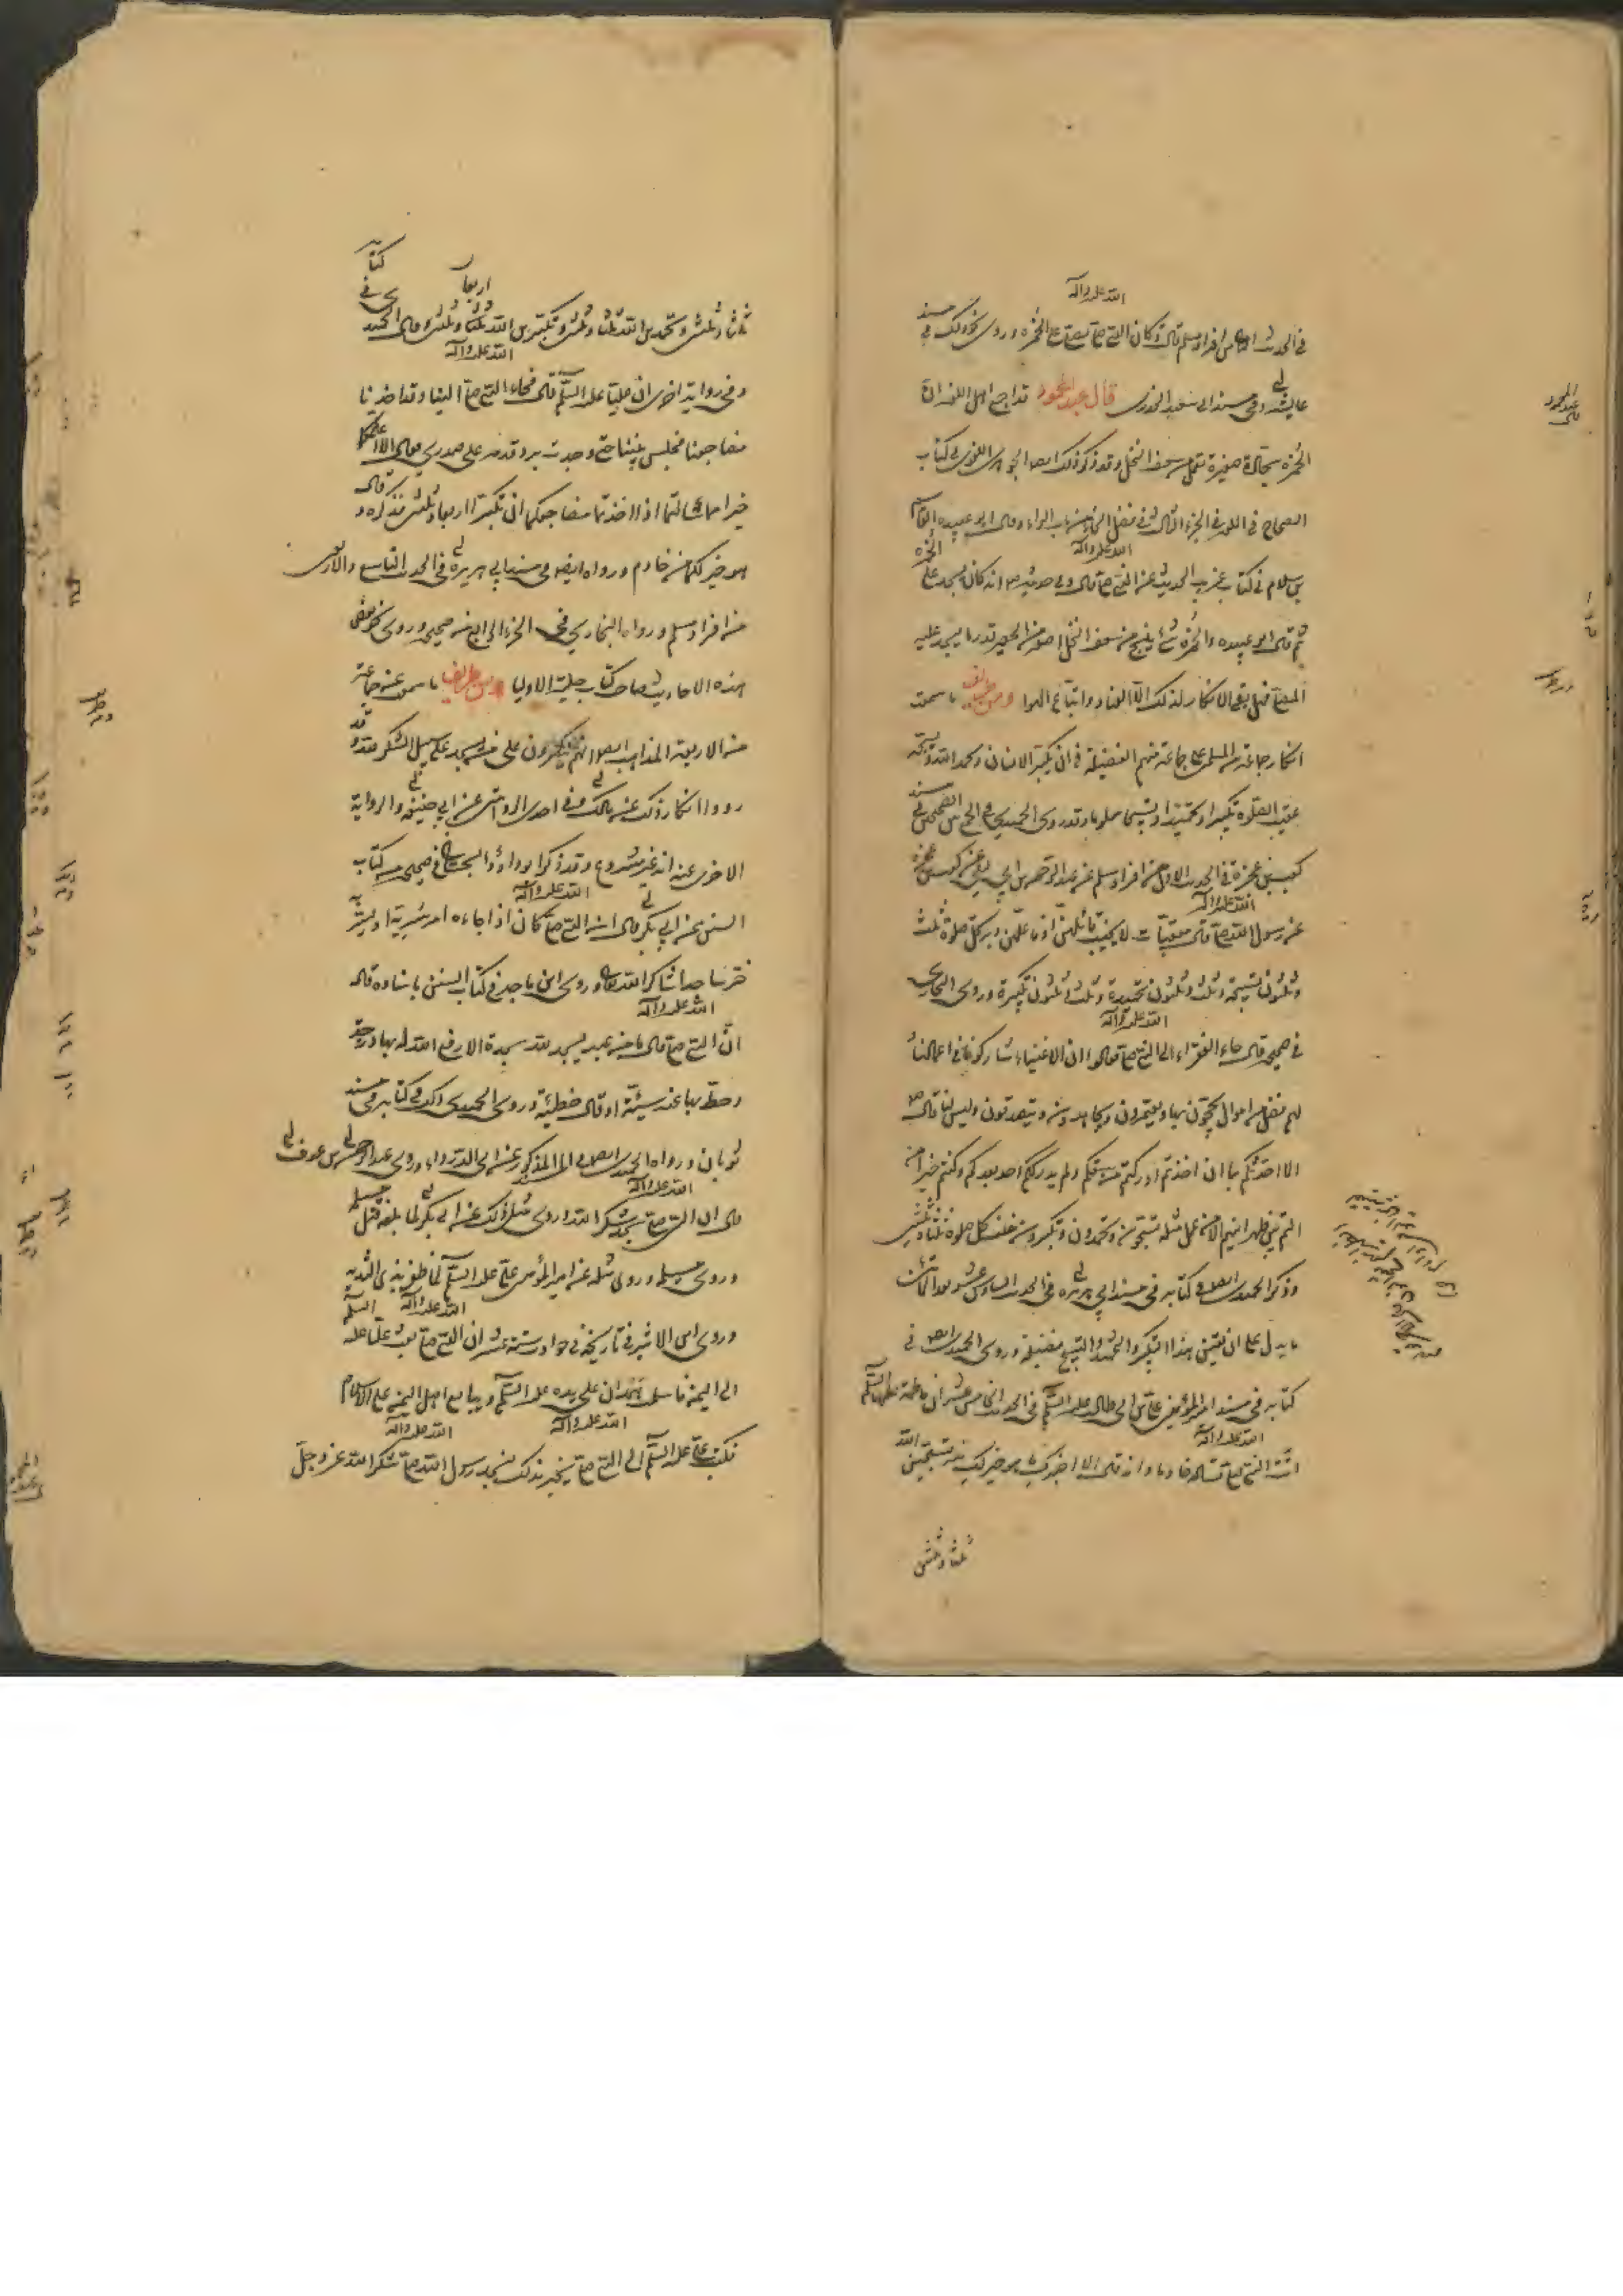 في الحديث الخامس من افراد مسلم قال وكان النبي صلى الله عليه وآله يصلي على الخمرة وروى نحو ذلك في مسند
عايشة وفي مسند ابي سعيد الخدري قال عبد المحمود قد اجمع اهل اللغة ان
الخمرة سجادة صغيرة تعمل من سعف النخل وقد ذكر ذلك ايضا الجوهري اللغوي في كتاب
الصحاح في اللغة في الجزء الثاني في فصل الخاء من باب الراء وقال ابو عبيده القاسم
بن سلام في كتاب غريب الحديث عن النبي صلى الله عليه وآله قال وفي حديثه انه كان يسجد على الخمرة
ثم قال ابو عبيده والخمرة شئ ينسج من سعف النخل اصغر من الحصير قدر ما يسجد عليه
المصلي فهل بقى الانكار لذلك الا العناد واتباع الهوا ومن طريف ما سمعت
انكار جماعة من المسلمين على جماعة منهم الفضيلة في ان يكبر الانسان ويحمد الله ويسبحه
عقيب الصلوة تكبيرا وتحميدا وتسبيحا معلوما وقد روى الحميدي في الجمع بين الصحيحين في مسند
كعب بن عجرة في الحديث الاول من افراد مسلم عن عبد الرحمن بن ابي ليلى عن كعب بن عجرة
عن رسول الله صلى الله عليه وآله قال معقبات لا يخيب قائلهن او فاعلهن دبر كل صلوة ثلث
وثلثون تسبيحة وثلث وثلثون تحميدة وثلث وثلثون تكبيرة وروى البخاري
في صحيحه قال جاء الفقراء الى النبي صلى الله عليه وآله فقالوا ان الاغنياء شاركونا في اعمالنا
لهم فضل من اموال يحجون بها ويعتمرون ويجاهدون ويتصدقون وليس لنا قال
الا احدثكم بما ان اخذتم ادركتم من سبقكم ولم يدرككم احد بعدكم وكنتم خير من
انتم بين ظهرانيهم الا من عمل مثله تسبحون وتحمدون وتكبرون خلف كل صلوة ثلثا وثلثين
وذكر الحميدي ايضا في كتابه في مسند ابي هريرة في الحديث السادس عشر بعد المأتين
ما يدل على ان تعيين هذا التكبير والتحميد والتسبيح فضيلة وروى الحميدي ايضا في
كتابه في مسند امير المؤمنين علي بن ابي طالب عليه السلم في الحديث الخامس عشر ان فاطمة عليها السلم
اتت النبي صلى الله عليه وآله تسأله خادما وانه قال الا اخبرك بما هو خير لك منه تسبحين الله
ثلثا وثلثين
ثلثا وثلثين وتحمدين الله ثلثا وثلثين وتكبرين الله ثلثا وثلثين وقال الحميدي في كتابه اربعا
وفي رواية اخرى ان عليا عليه السلم قال فجاء النبي صلى الله عليه وآله الينا وقد اخذنا
مضاجعنا فجلس بيننا حتى وجدت برد قدمه على صدري فقال الا اعلمكما
خيرا مما سالتما اذا اخذتما مضاجعكما ان تكبرا اربعا وثلثين فذكره وقال
هو خير لكما من خادم ورواه ايضا في مسند ابي هريرة في الحديث التاسع والاربعين
من افراد مسلم ورواه البخاري في الجزء الرابع من صحيحه وروى نحو بعض
هذه الاحاديث صاحب كتاب حلية الاولياء ومن طريف ما سمعت عن جماعة
من الاربعة المذاهب ايضا انهم ينكرون على من يسجد على سبيل الشكر لله وقد
رووا انكار ذلك عن مالك وفي احدى الروايتين عن ابي حنيفة والرواية
الاخرى عنه انه غير مشروع وقد ذكر ابو داود السجستاني في صحيحه كتاب
السنن عن ابي بكر قال ان النبي صلى الله عليه وآله كان اذا جاءه امر يسر به او بشر به
خر ساجدا شاكرا لله تعالى وروى ابن ماجه في كتاب السنن باسناده قال
ان النبي صلى الله عليه وآله قال ما من عبد يسجد لله سجدة الا رفع الله له بها درجة
وحط بها عنه سيئة او قال خطيئة وروى الحميدي ذلك في كتابه في مسند
ثوبان ورواه الحميدي ايضا في المذكور عن ابي الدرداء وروى عبد الرحمن بن عوف
قال ان النبي صلى الله عليه وآله سجد شكرا لله وروى مثل ذلك عن ابي بكر لما بلغه قتل مسيلمة
وروى مثله عن امير المؤمنين علي عليه السلم لما ظفر بذي الثدية
وروى ابن الاثير في تاريخه في حوادث سنة عشر ان النبي صلى الله عليه وآله بعث عليا عليه السلم
الى اليمن فاسلمت همدان على يده عليه السلم وتبايع اهل اليمن على الاسلام
فكتب علي عليه السلم الى النبي صلى الله عليه وآله يخبره بذلك فسجد رسول الله صلى الله عليه وآله شكرا لله عز وجل